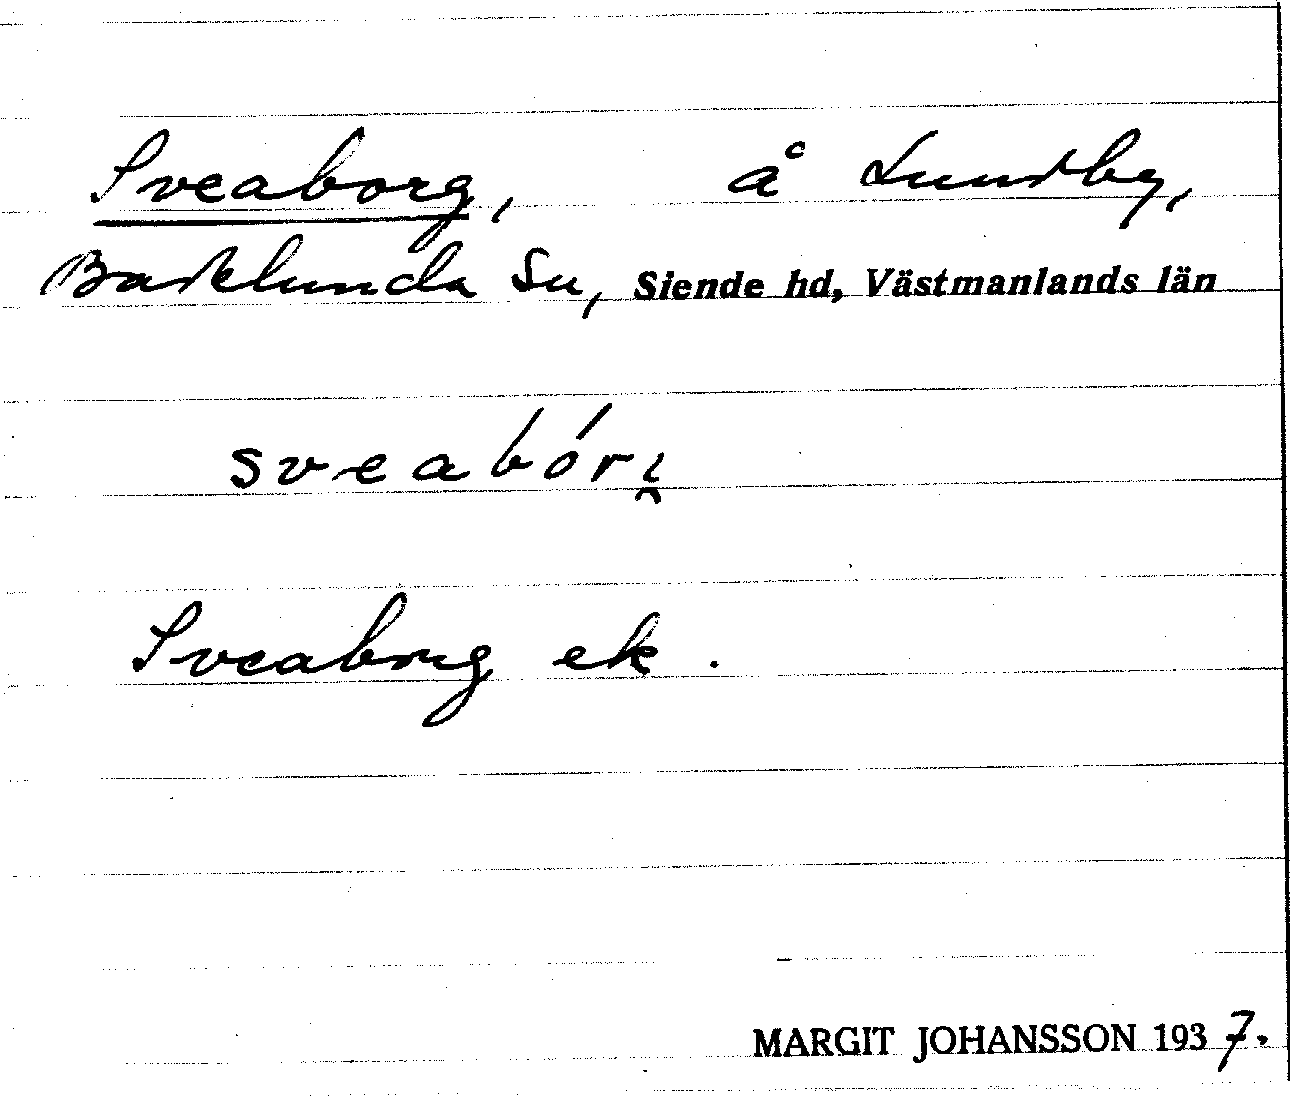 Sveaborg, å Lundby,
Barklunda Sn, Siende hd, Västmanlands län
sveabóri̯
Sveaborg ek.
MARGIT JOHANSSON 1937.